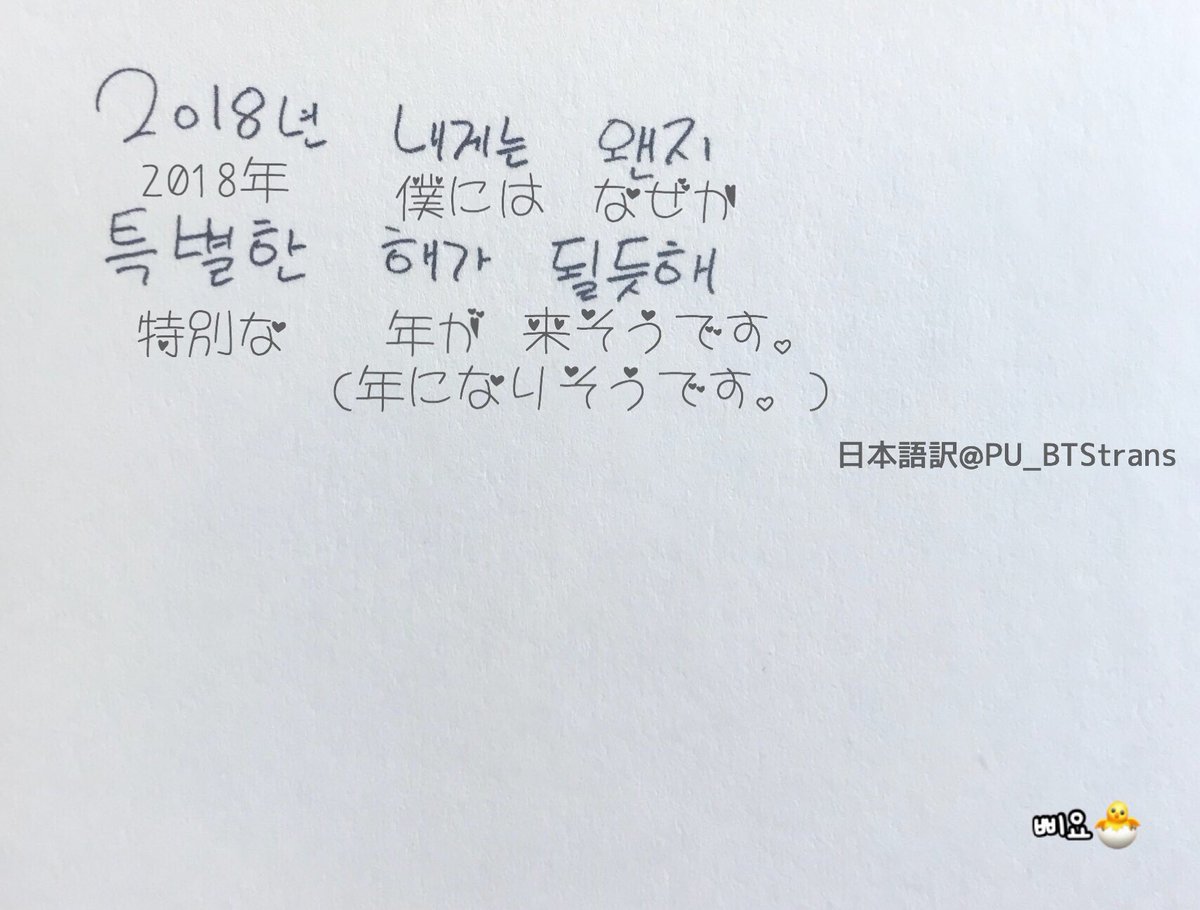 2018년 내게는 왠지
2018年 僕には なぜか
특별한 해가 될듯해
特別な 年が 来そうです。
(年になりそうです。)
日本語訳@PU_BTStrans
삐요🐣